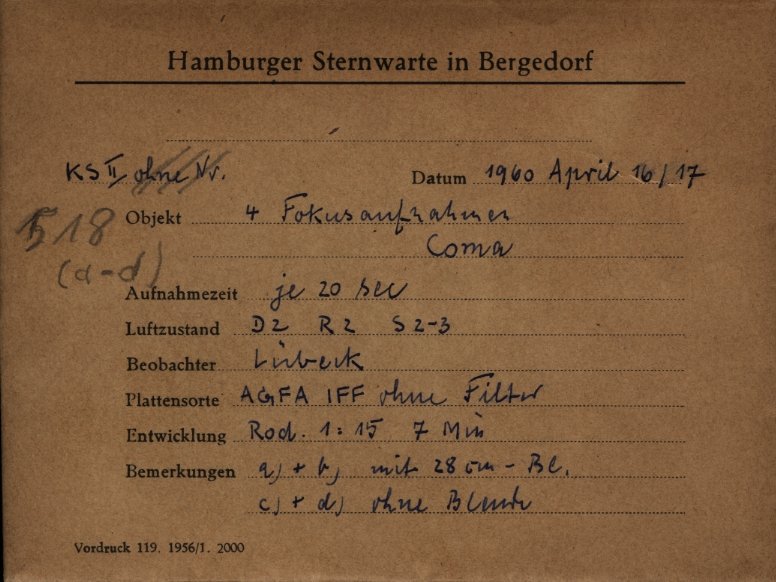 Hamburger Sternwarte in Bergedorf
KS II ohne Nr. Datum 1960 April 16/17
518 Objekt 4 Fokusaufnahmen
(a-d) Coma
Aufnahmezeit je 20 sec
Luftzustand D2 R2 S2-3
Beobachter Lübeck
Plattensorte AGFA IFF ohne Filter
Entwicklung Rod. 1:15 7 Min
Bemerkungen a) + b) mit 28 cm - Bl.
c) + d) ohne Blende
Vordruck 119. 1956/1. 2000